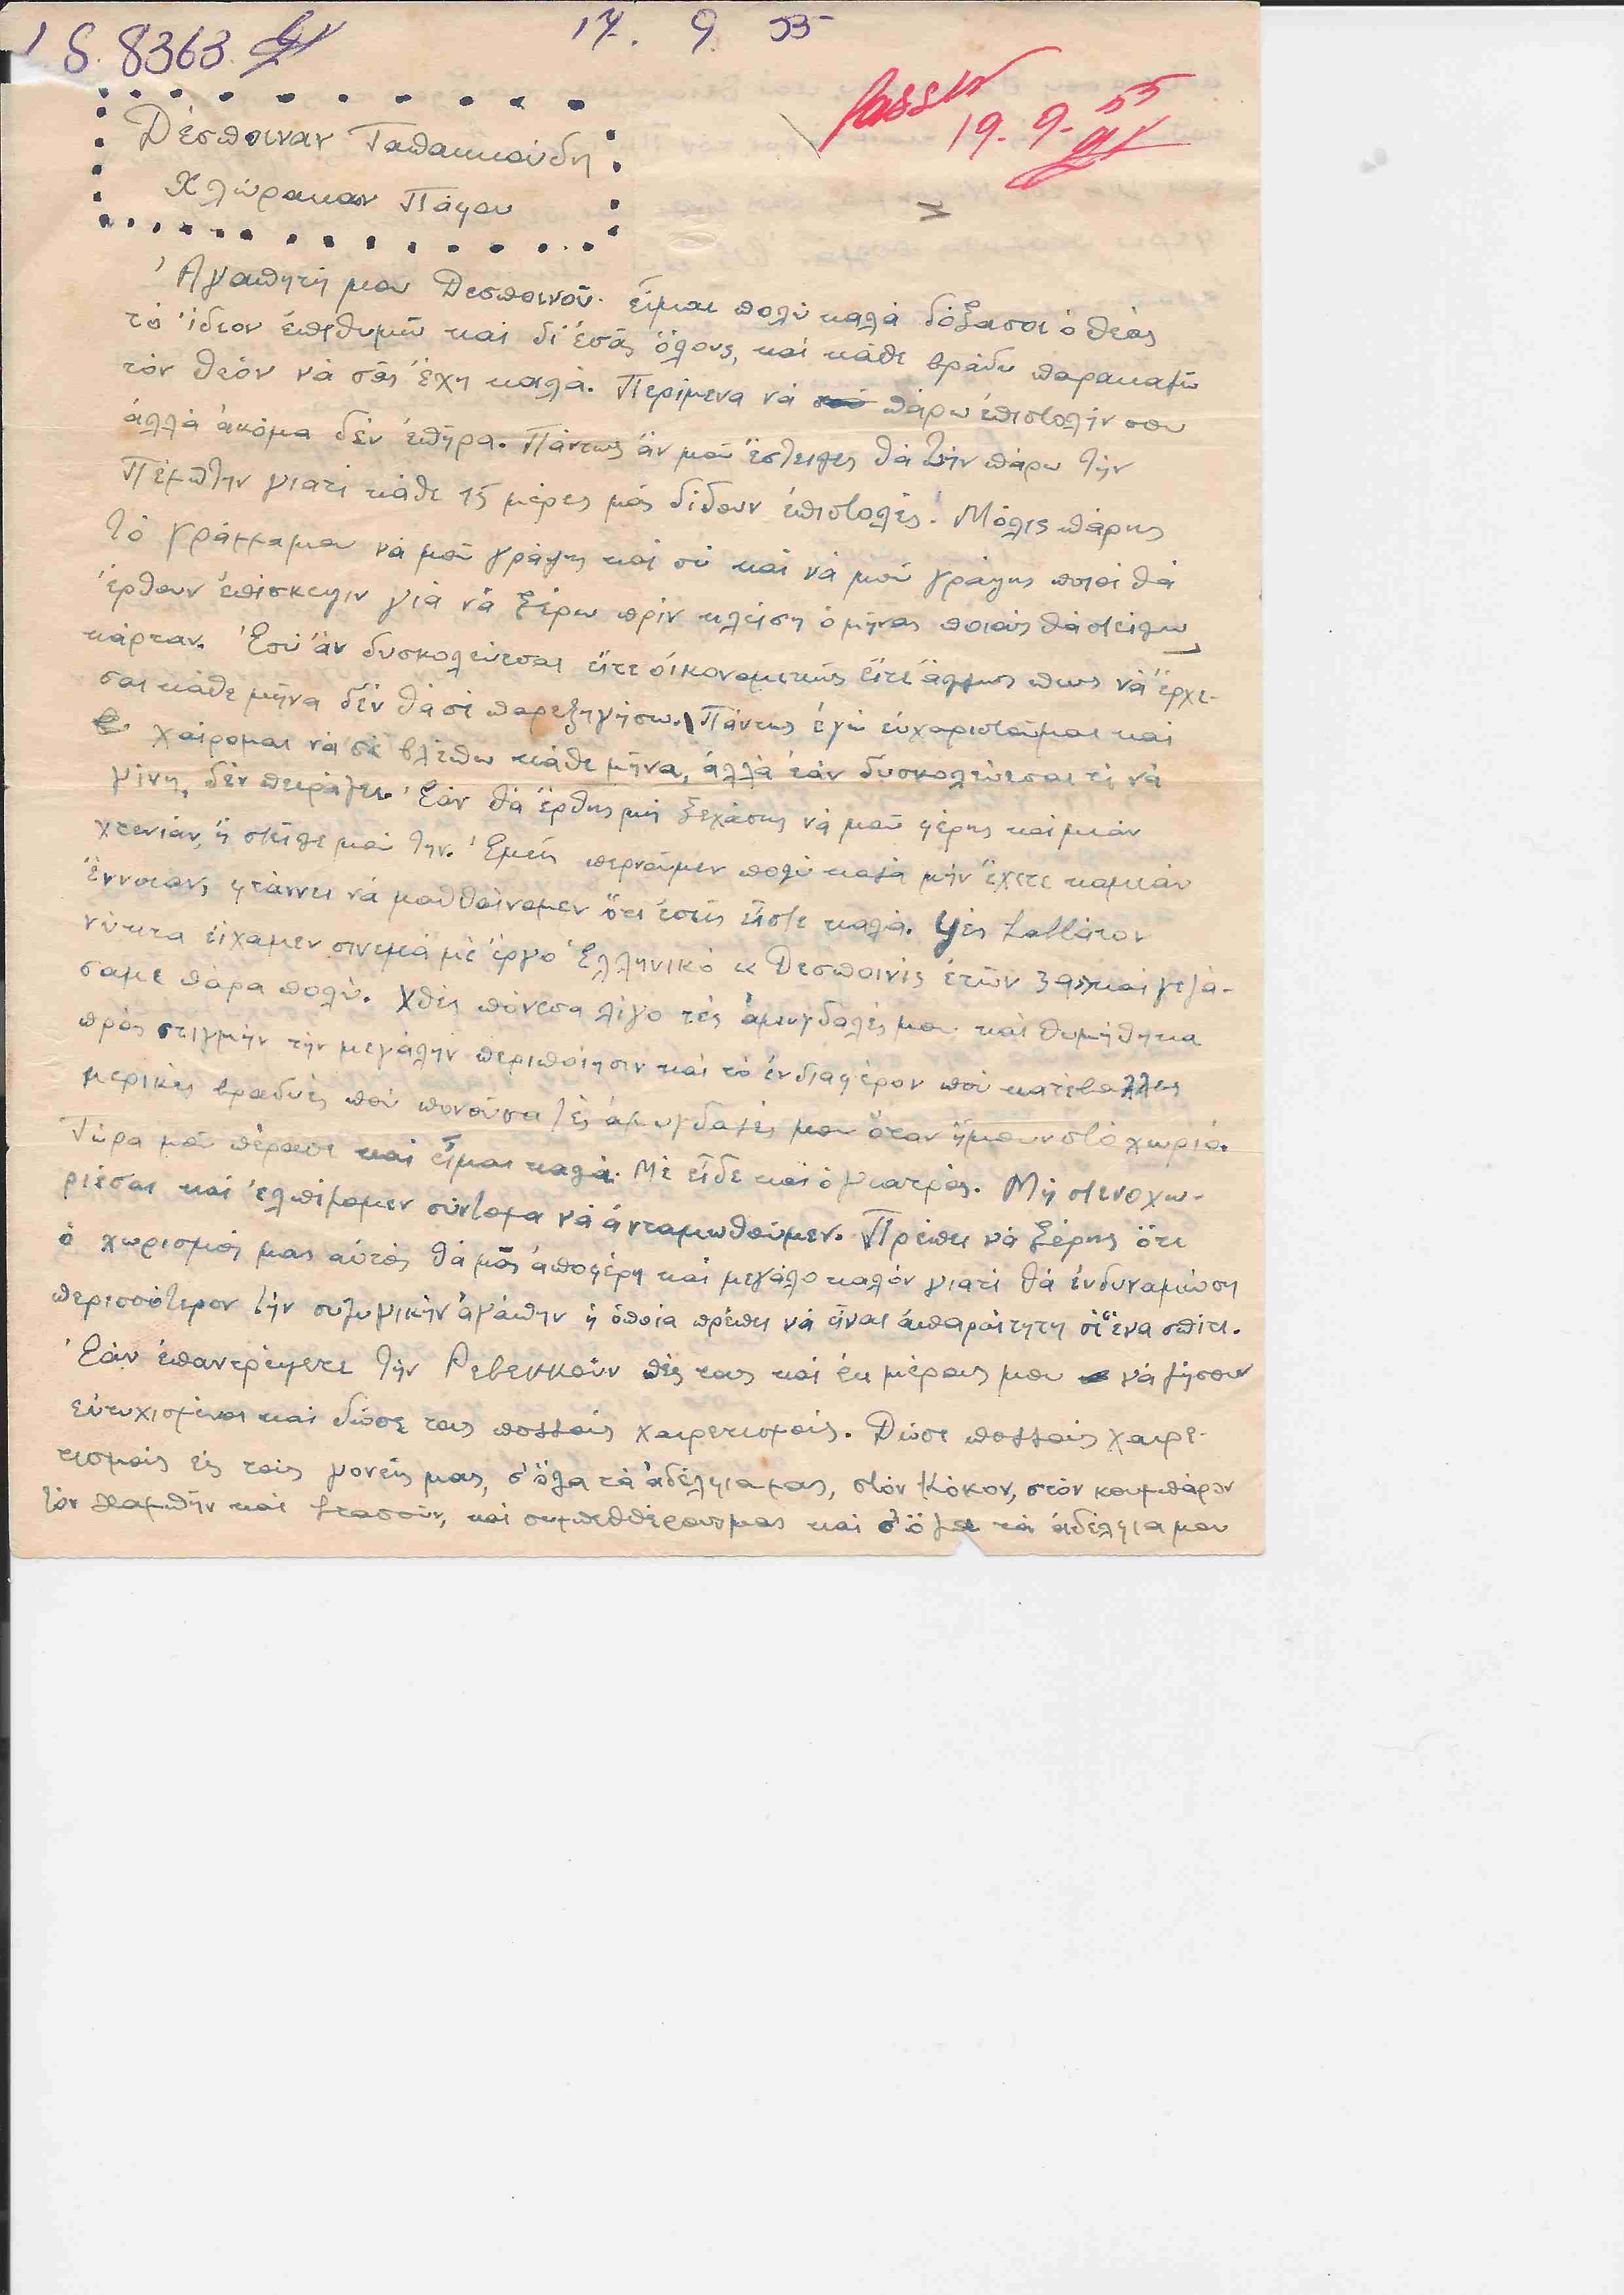 S. 8363.
17. 9. 55
19-9-55
Δέσποιναν Ταπακκούδη
Χλώρακαν Πάφου
Ἀγαπητή μου Δεσποινοῦ. εἶμαι πολύ καλά δόξασοι ὁ θεός
τό ἴδιον ἐπιθυμῶ καί δι' ἐσᾶς ὅλους, καί κάθε βράδυ παρακαλῶ
τόν θεόν νά σᾶς ἔχη καλά. Περίμενα νά πάρω ἐπιστολήν σου
ἀλλά ἀκόμα δέν ἐπῆρα. Πάντως ἄν μοῦ ἔστειλες θά τήν πάρω τήν
Πέμπτην γιατί κάθε 15 μέρες μάς δίδουν ἐπιστολές. Μόλις πάρης
τό γράμμα μου νά μοῦ γράψης καί σύ καί νά μοῦ γράψης ποιοί θά
ἔρθουν ἐπίσκεψιν γιά νά ξέρω πρίν κλείση ὁ μήνας ποιούς θά στείλω
κάρταν. Ἐσύ ἄν δυσκολεύεσαι εἴτε οἰκονομικῶς εἴτε ἄλλως πως νά ἔρχε-
σαι κάθε μῆνα δέν θά σέ παρεξηγήσω. Πάντως ἐγώ εὐχαριστοῦμαι καί
χαίρομαι νά σέ βλέπω κάθε μῆνα, ἀλλά ἐάν δυσκολεύεσαι τί νά
γίνη, δέν πειράζει. Ἐάν θά ἔρθης μή ξεχάσης νά μοῦ φέρης καί μιάν
χτενιάν, ἤ στεῖλε μοῦ την. Ἐμεῖς περνοῦμεν πολύ καλά μήν ἔχετε καμιάν
ἔννοιαν, φτάννει νά μαθθαίνομεν ὅτι ἐσεῖς εἶστε καλά. Ψές Σάββατον
νύκτα εἴχαμεν σινεμά μέ ἔργο Ἑλληνικό « Δεσποινίς ἐτῶν 39 » καί γελά-
σαμε πάρα πολύ. Χθές πόνεσα λίγο τές ἀμυγδαλές μου καί θυμήθηκα
πρός στιγμήν τήν μεγάλην περιποίησιν καί τό ἐνδιαφέρον πού κατέβαλλες
μερικές βραδυές πού πονοῦσα τές ἀμυγδαλές μου ὅταν ἤμουν στό χωριό.
Τώρα μοῦ πέρασε καί εἶμαι καλά. Μέ εἶδε καί ὁ γιατρός. Μή στενοχω-
ριέσαι καί ἐλπίζομεν σύντομα νά ἀνταμωθοῦμεν. Πρέπει νά ξέρης ὅτι
ὁ χωρισμός μας αὐτός θά μᾶς ἀποφέρη καί μεγάλο καλόν γιατί θά ἐνδυναμώση
περισσότερον τήν συζυγικήν ἀγάπην ἡ ὁποία πρέπει νά εἶναι ἀπαραίτητη σ' ἕνα σπίτι.
Ἐάν ἐπαντρέψετε τήν Ρεβεκκούν πές τους καί ἐκ μέρους μου νά ζήσουν
εὐτυχισμένοι καί δώσε τους πολλούς χαιρετισμούς. Δώσε πολλούς χαιρε-
τισμούς εἰς τούς γονεῖς μας, σ' ὅλα τά ἀδέλφια μας, στόν Κόκον, στόν κουμπάρον
τόν καί συμπεθθέρους μας καί σ' ὅλα τά ἀδέλφια μου